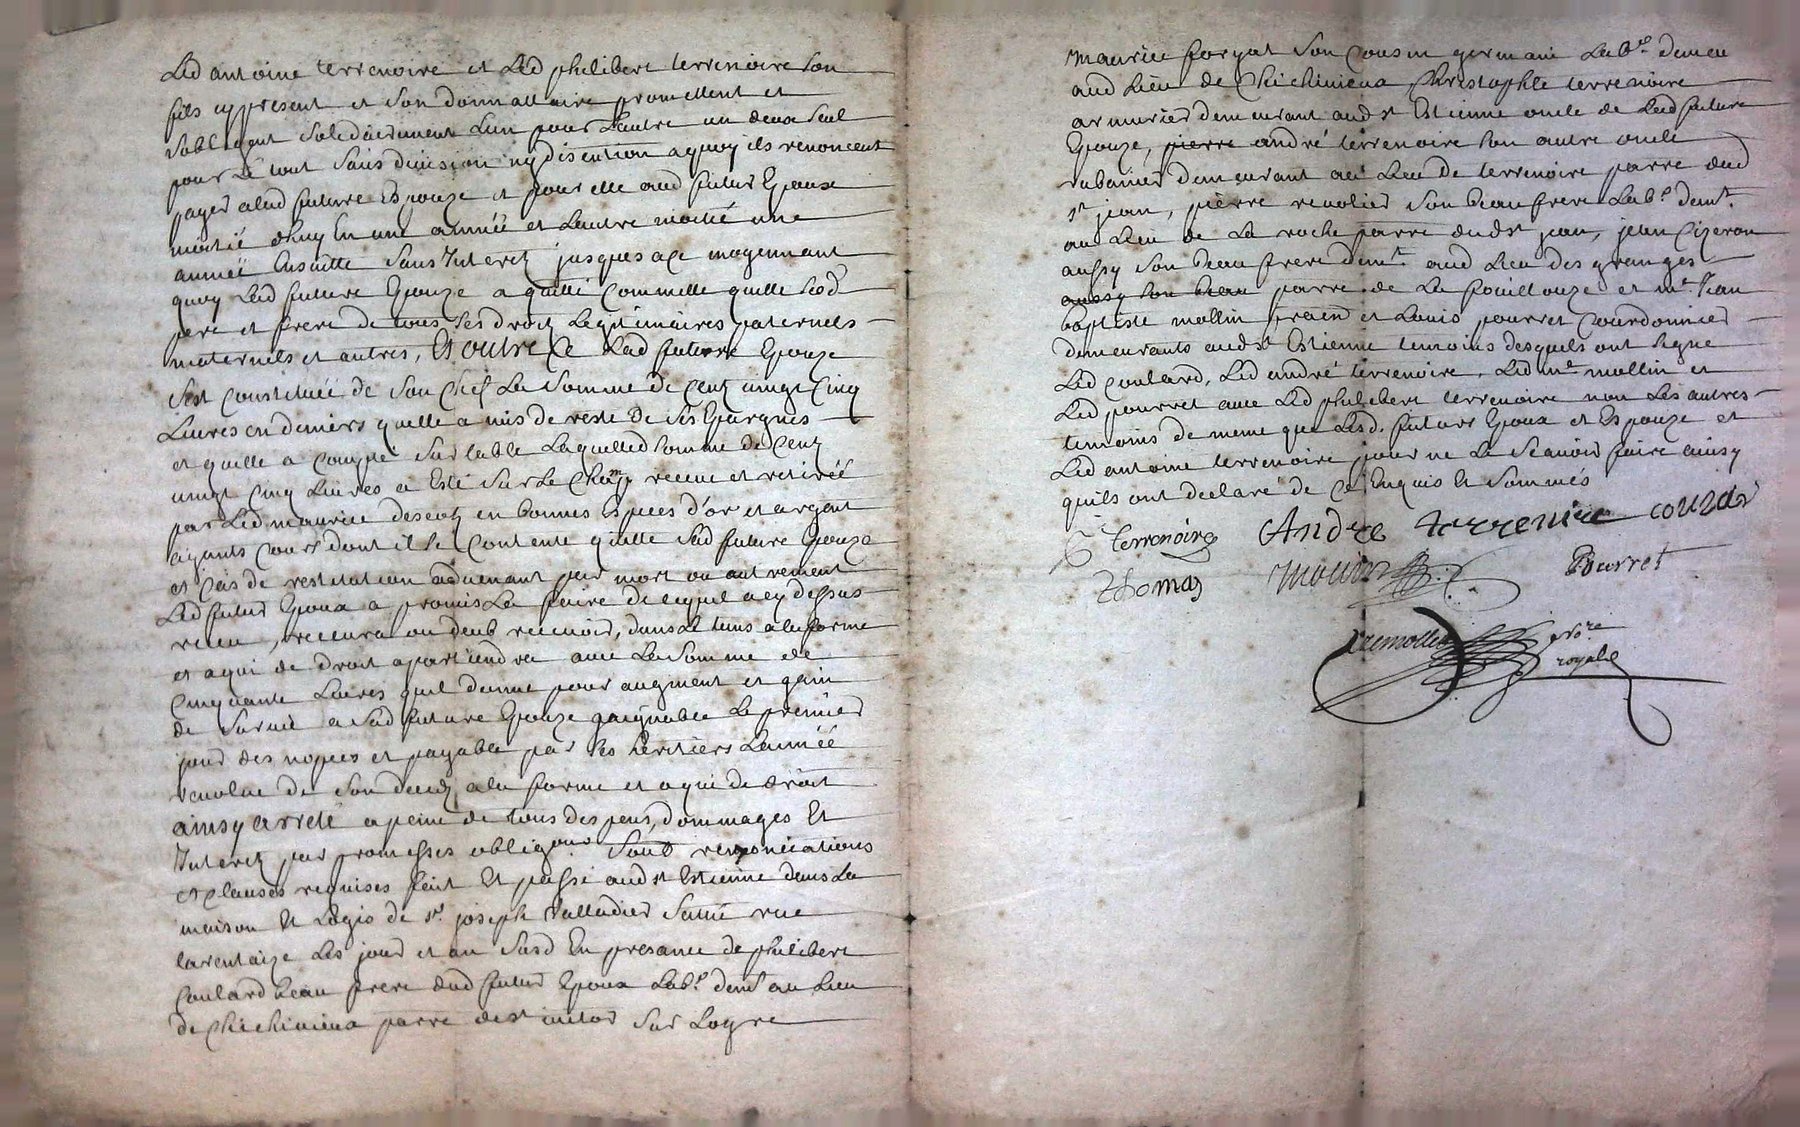 Led antoine terrenoire et Led philibert terrenoire son
fils cy present et son donnattaire promettent et
sobligent solidairement Lun pour Lautre un deux seul
pour Le tout sans division ny disention a quoy ils renoncent
payer alad future Espouze et pour elle aud futur Epoux
moitié dhuy En une année et Lautre moitié une
année Ensuitte sans Interetz jusques a ce moyennant
quoy Lad future Epouze a quitté comme elle quitte sesd
pere et frere de tous ses droits Legitimaires paternels
maternels et autres, Et outre ce Lad future Epouze
sest constituée de son chef La somme de cent vingt cinq
Livres en deniers quelle a mis de reste de ses Epargnes
et quelle a compté sur table Laquelled somme de cent
vingt cinq Livres a Esté sur Le champ receue et retirée
par Led maurice en bonnes Especes d'or et argent
ayants cours dont il se contente quitte sad future Epouze
et cas de restitution advenant par mort ou autrement
Led futur Epoux a promis La faire de ce quil a cy dessus
receu, recevra ou deub recevoir, dans Le tems a la forme
et a qui de droit apartiendra avec La somme de
cinquante Livres quil donne pour augment et gain
de survie a sad future Epouze gaignable Le premier
jour des nopces et payable par ses heritiers Lannéé
revolue de son deceds a la forme et a qui de droit
ainsy arreté a peine de tous despens, dommages Et
Interetz par promesses obligaons soub renonciations
et clauses requises fait Et passé aud st Estienne dans La
maison Et Logis de sr. joseph valladier scitué rue
Larentaize Les jour et an susd En presance de philibert
coulard beau frere dud futur Epoux Labr. demt au Lieu
de chichivieux parre de st victor sur Loyre
maurice forgat son cousin germain Labr. demeu
aud Lieu de chichivieux christophle terrenoire
armurier demeurant aud st Estienne oncle de Lad future
Epouze, pierre andré terrenoire son autre oncle
rubanier demeurant au Lieu de terrenoire parre dud
st jean, pierre revolier son beau frere Labr. demt.
au Lieu de La roche parre dud st jean, jean cizeron
aussy son beau frere demt. aud Lieu des granges
aussy son beau parre de La fouillouze et mr. Jean
baptiste mollin praen et Louis pourret courdonnier
demeurants aud st Estienne temoins desquels ont signé
Led coulard, Led andré terrenoire, Led mr mollin et
Led pourret avec Led philibert terrenoire non Les autres
temoins de meme que Lesd. futurs Epoux et Espouze et
Led antoine terrenoire pour ne Le scavoir faire ainsy
quils ont declaré de ce Enquis Et sommés
terrenoire Andre terrenire courar
thomas mollin Pourret
tremollet nore
royal